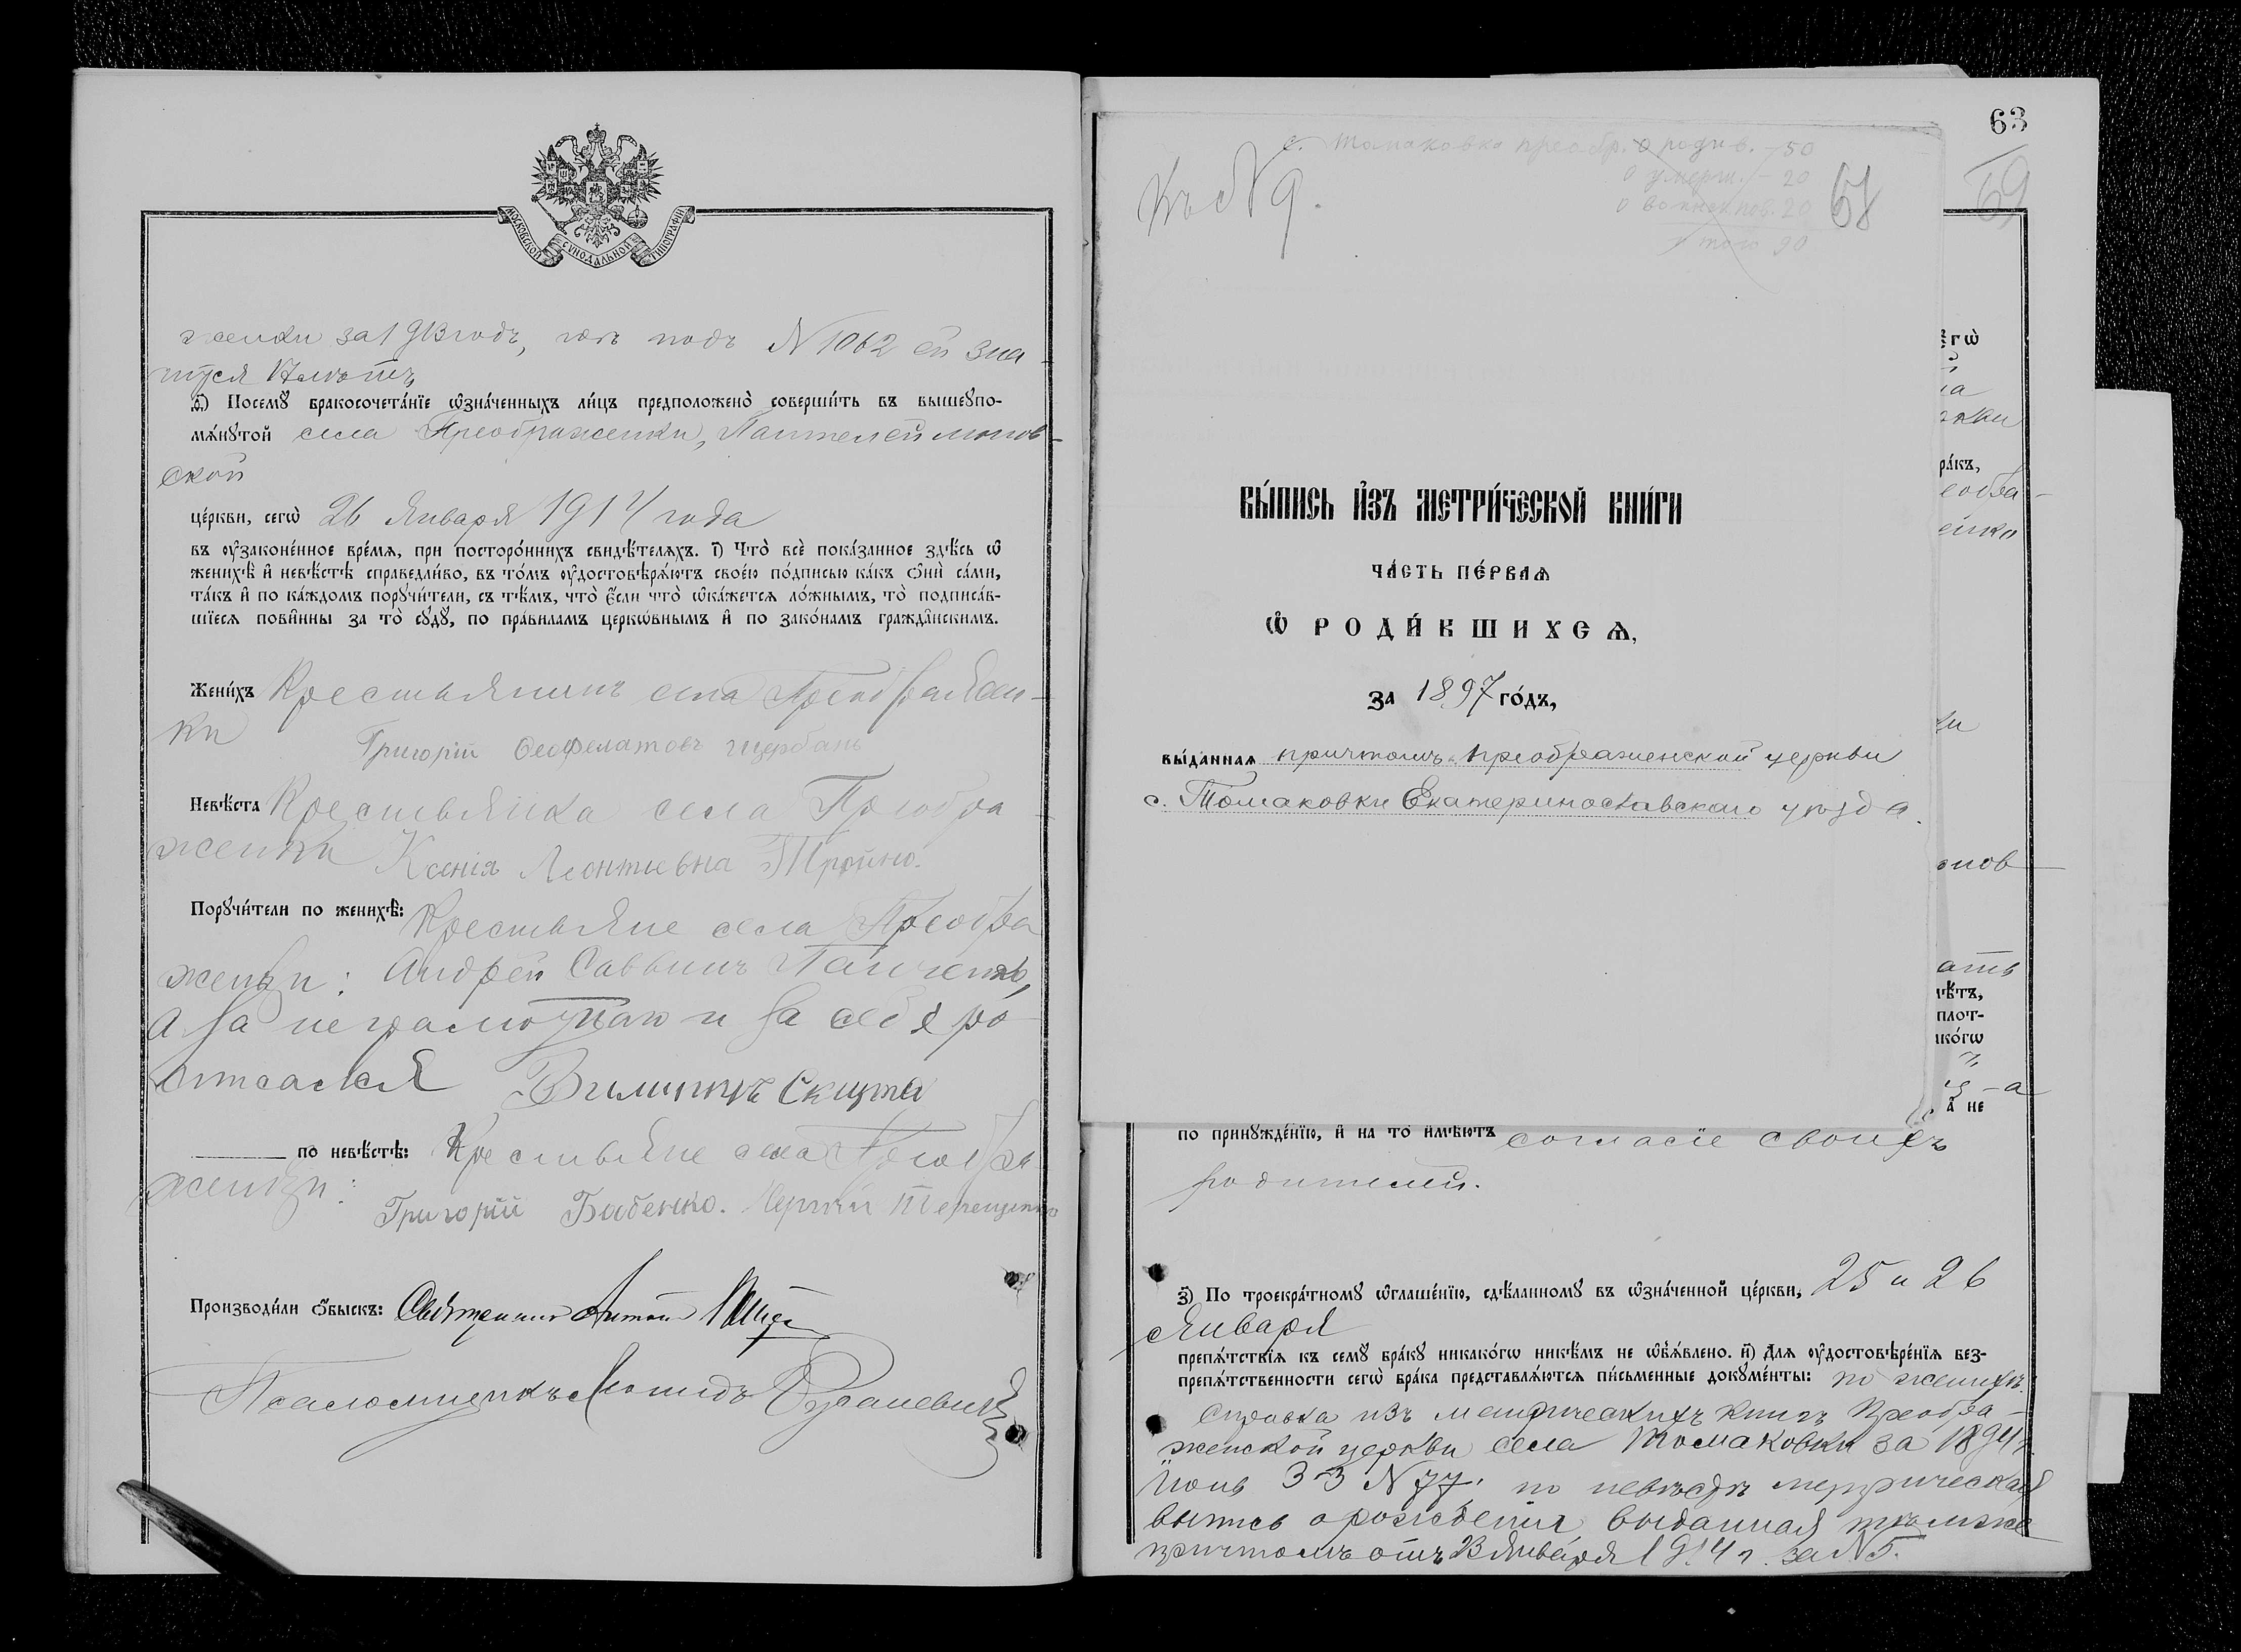 МОСКОВСКОЙ СѴНОДАЛЬНОЙ ТИПОГРАФІИ
женки за 1913 годъ, гдѣ подъ N 1062 ей зна-
чится 17 лѣтъ
ѳ) Посемꙋ бракосочета́нїе ѡзна́ченныхъ ли́цъ предположено̀ соверши́ть въ вышеꙋпо-
мѧ́нꙋтой села Преображенки, Пантелеймонов-
ской
це́ркви, сегѡ̀ 26 Января 1914 года
въ ᲂу҆законе́нное вре́мѧ, при посторо́ннихъ свидѣ́телѧхъ. і҃) Что̀ всѐ пока́занное здѣ́сь ѡ҆
женихѣ̀ и҆ невѣ́стѣ справедли́во, въ то́мъ ᲂу҆достовѣрѧ́ютъ свое́ю по́дписью ка́къ ѻ҆нѝ са́ми,
та́къ и҆ по ка́ждомъ порꙋчи́тели, съ тѣ́мъ, что̀ є҆́сли что̀ ѡ҆ка́жетсѧ ло́жнымъ, то̀ подписа́в-
шїесѧ пови́нны за то̀ сꙋдꙋ̀, по пра́виламъ церкѡ́внымъ и҆ по зако́намъ гражда̂нскимъ.
Жени́хъ Крестьянинъ села Преображен-
ки
Григорій Феофилатовъ Щербань
Невѣ́ста Крестьянка села Преобра-
женки Ксенія Леонтьевна
Порꙋчи́тели по женихѣ̀: Крестьяне села Преобра
женки: Андрей Саввинъ Панченко,
а за неграмотнаго и за себя ро
списался Скирта
по невѣ́стѣ: Крестьяне села Преобра
женки:
Григорій Бабенко. Терещенко
Производи́ли ѻ҆́быскъ: Священникъ Антоній
Псаломщикъ Леонидъ
63
69
68
с. Томаковка преобр. о родив. - 50
о умерш. - 20
о 20
итого 90
Къ N 9.
ВЫ́ПИСЬ И҆ЗЪ МЕТРИ́ЧЕСКОЙ КНИ́ГИ
ЧА́СТЬ ПЕ́РВАѦ
Ѡ҆ РОДИ́ВШИХСѦ,
за 1897 го́дъ,
вы́даннаѧ причтомъ Преображенской церкви
с. Томаковки Екатеринославскаго уѣзда.
по принꙋжде́нїю, и҆ на то̀ и҆мѣ́ютъ согласіе своихъ
родителей.
з҃) По троекра́тномꙋ ѡ҆глаше́нїю, сдѣ́ланномꙋ въ ѡ҆зна́ченной це́ркви, 25 и 26
Января
препѧ́тствїѧ къ семꙋ̀ бра́кꙋ никако́гѡ никѣ́мъ не ѡ҆б̾ѧ́влено. и҃) Длѧ ᲂу҆достовѣре́нїѧ без-
препѧ́тственности сегѡ̀ бра́ка представлѧ́ютсѧ пи́сьменные докꙋме́нты: по женихѣ
Справка изъ метрическихъ книгъ Преобра-
женской церкви села Томаковки за 1894 г.
N 77; по невѣстѣ метрическая
выпись о рожденіи выданная тѣмже
причтомъ отъ 23 Января 1914 г. за N 5.